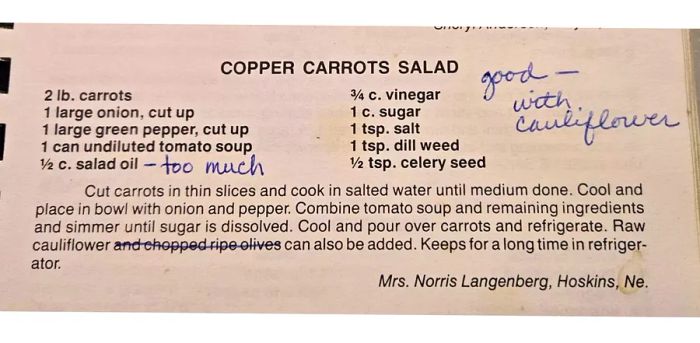 COPPER CARROTS SALAD
good —
with
cauliflower
2 lb. carrots
1 large onion, cut up
1 large green pepper, cut up
1 can undiluted tomato soup
½ c. salad oil – too much
¾ c. vinegar
1 c. sugar
1 tsp. salt
1 tsp. dill weed
½ tsp. celery seed
Cut carrots in thin slices and cook in salted water until medium done. Cool and
place in bowl with onion and pepper. Combine tomato soup and remaining ingredients
and simmer until sugar is dissolved. Cool and pour over carrots and refrigerate. Raw
cauliflower and chopped ripe olives can also be added. Keeps for a long time in refriger-
ator.
Mrs. Norris Langenberg, Hoskins, Ne.